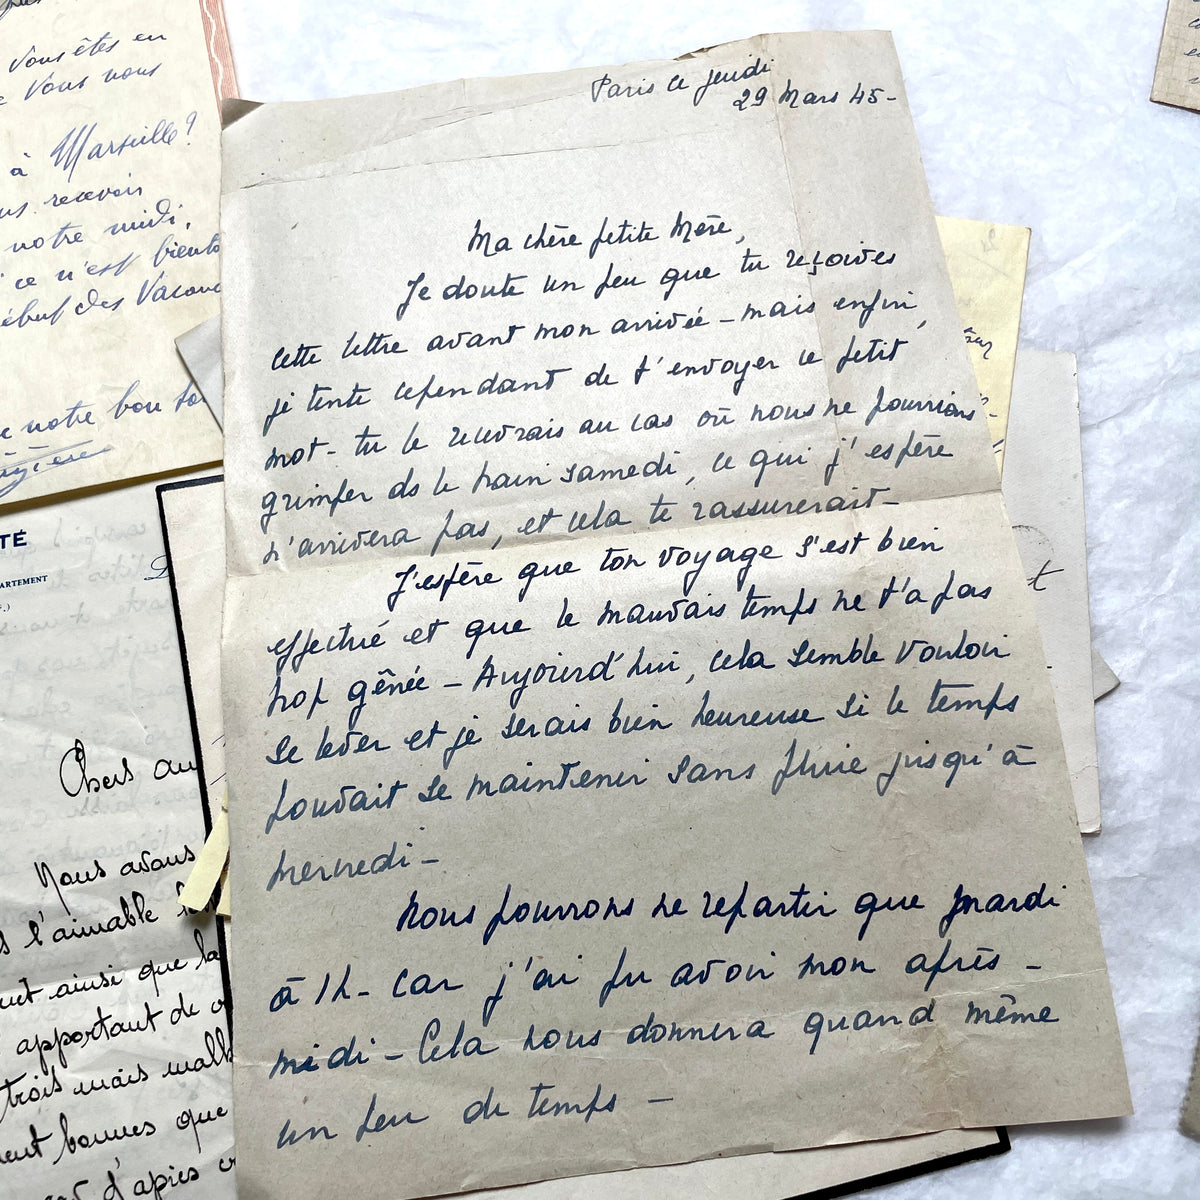 Paris le jeudi
29 Mars 45-
Ma chère petite Mère,
Je doute un peu que tu reçoives
cette lettre avant mon arrivée - mais enfin,
je tente cependant de t'envoyer ce petit
mot - tu le recevrais au cas où nous ne pourrions
grimper ds le train samedi, ce qui j'espère
n'arrivera pas, et cela te rassurerait-
J'espère que ton voyage s'est bien
effectué et que le mauvais temps ne t'a pas
trop gênée - Aujourd'hui, cela semble vouloir
se lever et je serais bien heureuse si le temps
pouvait se maintenir sans pluie jusqu'à
mercredi -
Nous pourrons ne repartir que mardi
à 1h - car j'ai pu avoir mon après -
midi - Cela nous donnera quand même
un peu de temps -
vous êtes en
vous nous
à Marseille?
recevoir
notre midi,
ce n'est bientô
début des Vacanc
notre bon
TÉ
ARTEMENT
Chers
Nous avons
l'aimable
ainsi que la
apportant de
trois mais
bonnes que
d'après
t